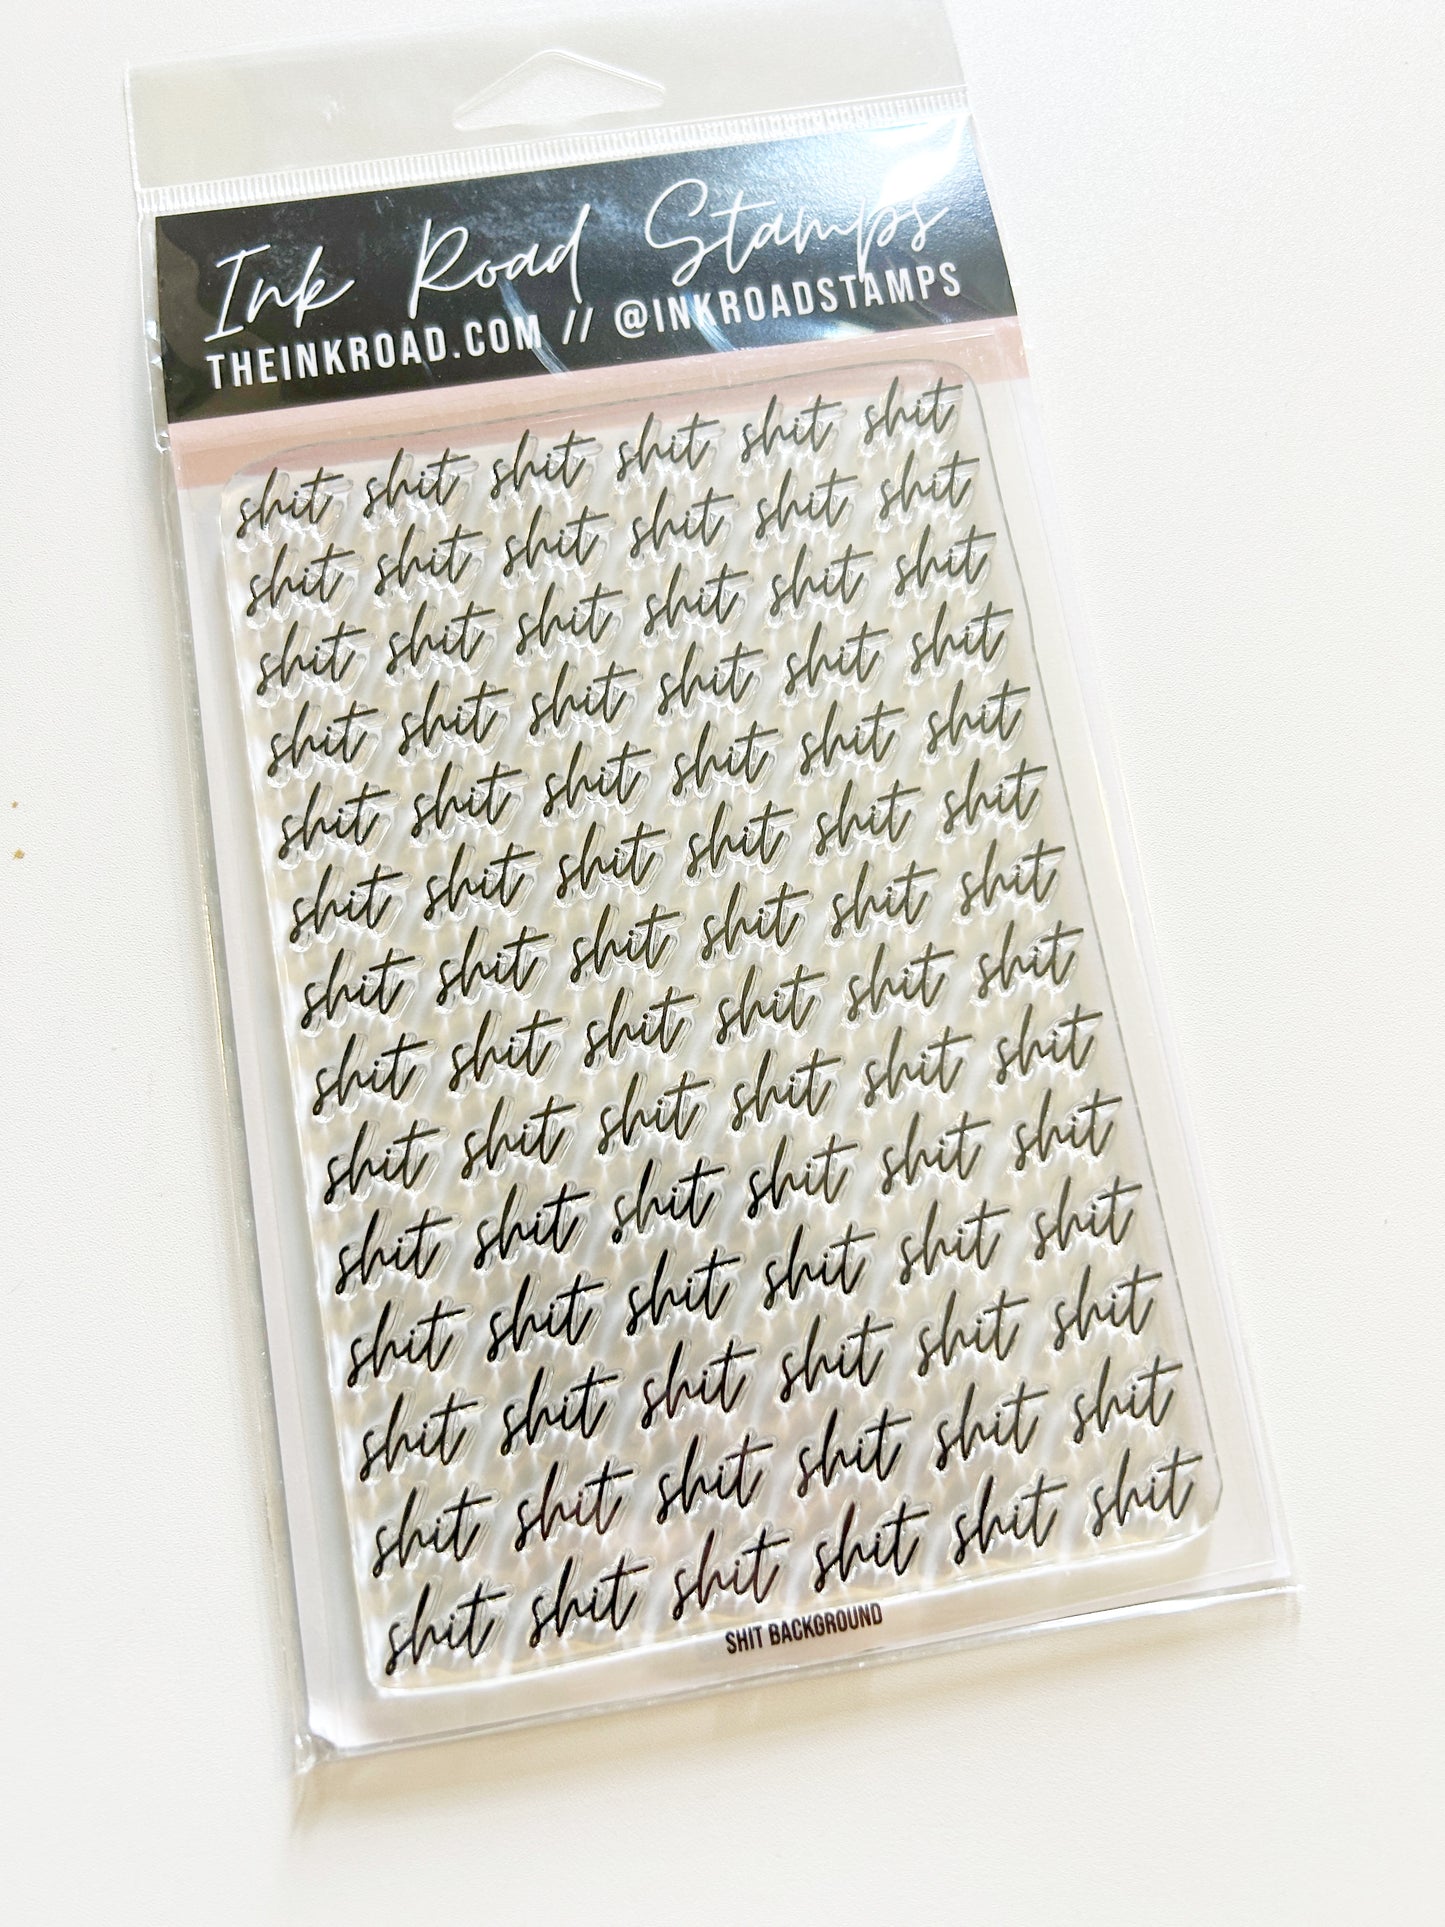 Ink Road Stamps
THEINKROAD.COM // @INKROADSTAMPS
shit shit shit shit shit shit
shit shit shit shit shit shit
shit shit shit shit shit shit
shit shit shit shit shit shit
shit shit shit shit shit shit
shit shit shit shit shit shit
shit shit shit shit shit shit
shit shit shit shit shit shit
shit shit shit shit shit shit
shit shit shit shit shit shit
shit shit shit shit shit shit
shit shit shit shit shit shit
shit shit shit shit shit shit
shit shit shit shit shit shit
SHIT BACKGROUND